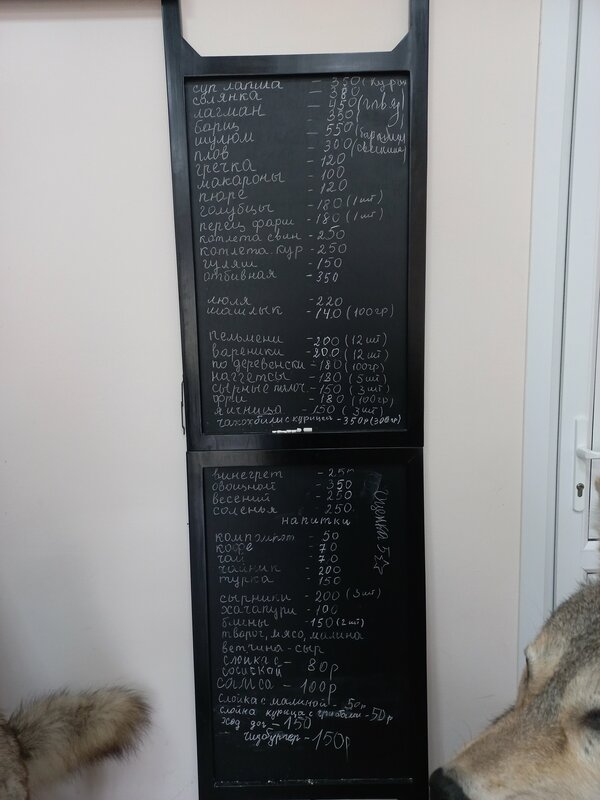 суп лапша - 350 (кура)
солянка - 380
лагман - 450 (говяд
борщ - 350
шулюм - 550 (баранин
плов - 300 (свинина
гречка - 120
макароны - 100
пюре - 120
голубцы - 180 (1 шт)
перец фарш - 180 (1 шт)
котлета свин - 250
котлета кур - 250
гуляш - 150
отбивная - 350
люля - 220
шашлык - 140 (100гр)
пельмени - 200 (12 шт)
вареники - 200 (12 шт)
по деревенски - 180 (100гр)
наггетсы - 180 (5 шт)
сырные палоч. - 150 (3 шт)
фри - 180 (100гр)
яичница - 150 (3 шт)
чахохбили с курицей - 350р (300гр)
винегрет - 250
овощной - 350
весений - 250
соленья 250.
напитки
комп - 50
кофе - 70
чай - 70
чайник - 200
турка - 150
сырники - 200 (3 шт)
хачапури - 100
блины - 150 (2 шт)
творог, мясо, малина
ветчина - сыр
слойка с - 80р
сосиской
самса - 100р
слойка с малиной - 50р
слойка курица с грибами - 50р
ход дог - 150
чизбургер - 150р